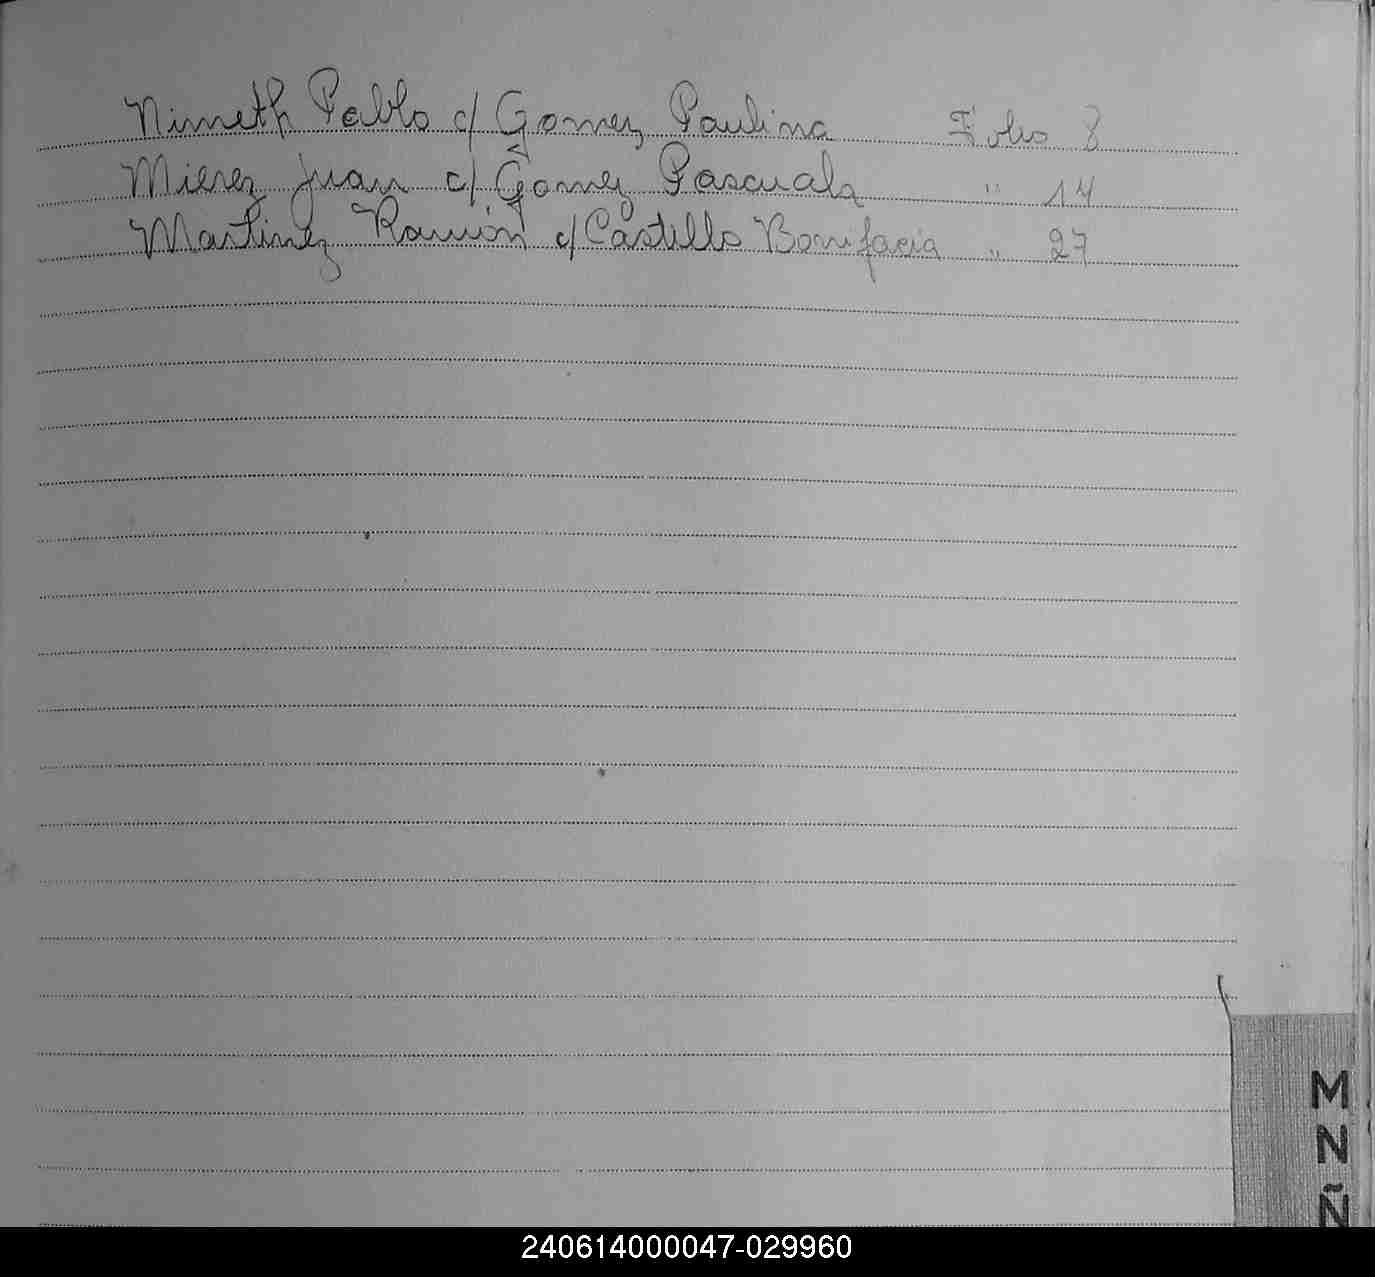 Nimeth Pablo c/ Gomez Paulina Folio 8
Mierez Juan c/ Gomez Pascuala " 14
Martinez Ramón c/ Castillo Bonifacia " 27
M
N
Ñ
240614000047-029960